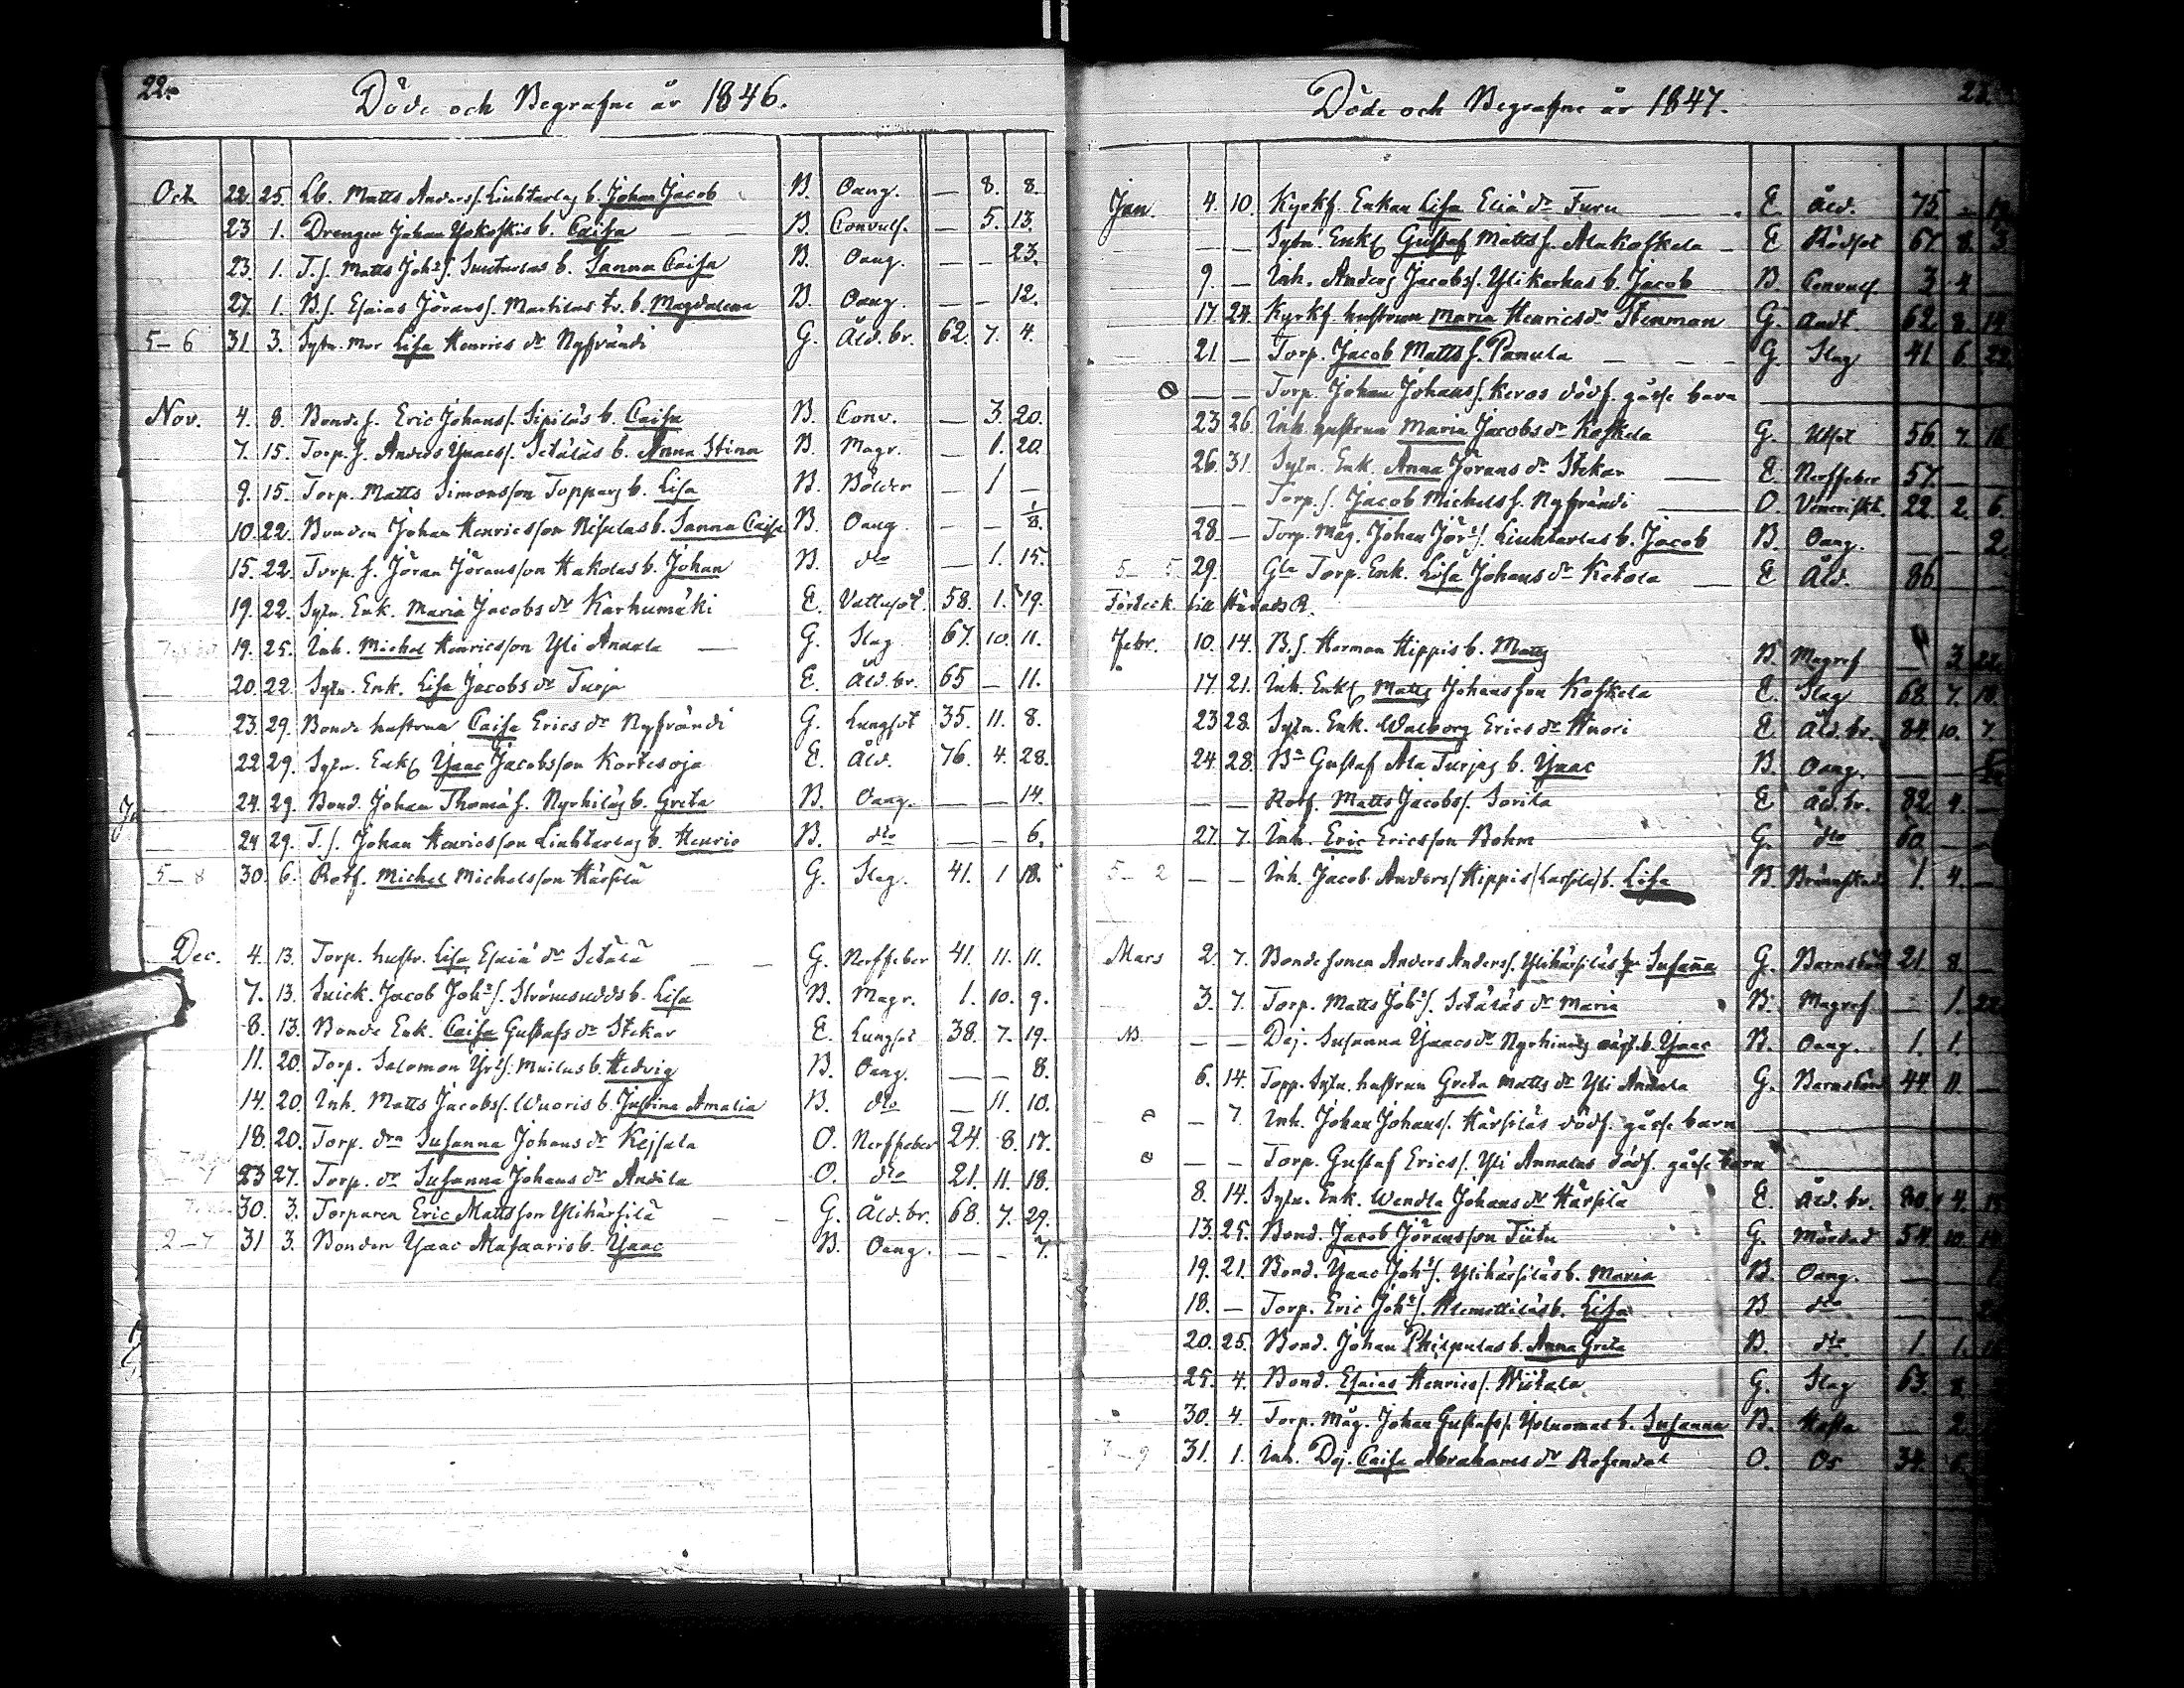 22.
Döde och Begrafne år 1846.
Oct. 22. 25. Lb. Matts Anders f. Liuktarlas b. Johan Jacob B. Oang. — 8. 8.
23 1. Drengen Johan Yxkoskis b. Caisa — — B. Convuls. — 5. 13.
23. 1. T.f. Matts Joh:s f. b. Sanna Caisa B. Oang. — — 23.
27. 1. B.f. Esaias Jörans f. Martilas tv. b. Magdalena B. Oang. — — 12.
5–6 31. 3. Sytn. mor Lisa Henrics dr Nyfrändi G. Åld. br. 62. 7. 4.
Nov. 4. 8. Bonde f. Eric Johans f. Sipiläs b. Caisa B. Conv. — 3. 20.
7. 15. Torp. f. Anders Ysaacs f. Setäläs b. Anna Stina B. Magr. — 1. 20.
9. 15. Torp. Matts Simonsson Toppars b. Lisa B. Bölder — 1 —
10. 22. Bonden Johan Henricsson Nisulas b. Sanna Caisa B. Oang. — — 1/8.
15. 22. Torp. f. Jöran Jöransson Hakolas b. Johan B. dto — 1. 15.
19. 22. Sytn. Enk. Maria Jacobs dr Karhumäki E. Vattusot 58. 1. 19.
19. 25. Inh. Michel Henricsson Yli Annala — G. Slag 67. 10. 11.
— 20. 22. Sytn. Enk. Lisa Jacobs dr Turja E. Åld. br. 65 — 11.
23. 29. Bonde hustrun Caisa Erics dr Nyfrändi G. Lungsot 35. 11. 8.
22 29. Sytn. Enkl Ysaac Jacobsson Kortesoja E. Åld. 76. 4. 28.
24. 29. Bond. Johan Thomæ f. Nyrhiläs b. Greta B. Oang. — — 14.
— 24 29. T.f. Johan Henricsson Liuktarlas b. Henric B. dto — — 6.
5–8 30. 6. Rotf. Michel Michelsson Härsilä G. Slag. 41. 1 18.
Dec. 4. 13. Torp. hustr. Lisa Esaiæ dr Setälä — — G. Nerffeber 41. 11. 11.
7. 13. Snick. Jacob Joh:s f. Strömsudds b. Lisa B. Magr. 1. 10. 9.
8. 13. Bonde Enk. Caisa Gustafs dr Stekar E. Lungsot 38. 7. 19.
11. 20. Torp. Salomon f. Muilus b. Hedvig B. Oang. — — 8.
14. 20. Inh. Matts Jacobs f. Wuoris b. Justina Amalia B. dto — 11. 10.
18. 20. Torp. dr Susanna Johans dr Kejsala O. Nerffeber 24. 8. 17.
23 27. Torp. dr Susanna Johans dr Andila O. dto 21. 11. 18.
30. 3. Torparen Eric Mattsson Ylihärsilä — — G. Åld. br. 68. 7. 29.
2–7 31 3. Bonden Ysaac Alasaaris b. Ysaac B. Oang. — — 7.
Döde och Begrafne år 1847.
Jan. 4. 10. Kyrkf. Enkan Lisa Eliæ dr Furu — — E. Åld. 75. —
— — Sytn. Enkl Gustaf Matts f. Alakoskela — E Rödsot 67. 8. 3
9. — Inh. Anders Jacobs f. Ylikarhus b. Jacob B. Convuls. 3 4 —
17. 24. Kyrkf. hustrun Maria Henrics dr Stenman G. Andt. 62. 8. 14
21. — Torp. Jacob Matts f. Panula — — G. Slag 41. 6. 22.
— — Torp. Johan Johans f. Keros dödf. gåsse barn —
23 26. Inh. hustrun Maria Jacobs dr Koskela G. Utsot 56. 7. 16
26. 31. Sytn. Enk. Anna Jörans dr Stekar — E. Nerffeber 57. —
— Torp. f. Jacob Michels f. Nyfrändi — O. Venerisk 22. 2. 6.
28. — Torp. Måg. Johan Jör:s f. Liuktarlas b. Jacob B. Oang. — — 2.
5–5. 29. Gla Torp. Enk. Lisa Johans dr Ketola — E Åld. 86
Förteck. till Härads R.
Febr. 10. 14. B.f. Herman Hippis b. Matts B. Magref — 3. 22.
17. 21. Inh. Enkl Matts Johansson Koskela E. Slag 68. 7. 10.
23 28. Sytn. Enk. Walborg Erics dr Huori E Åld. br. 84. 10. 7.
24. 28. Bn Gustaf Ala Turjas b. Ysaac B. Oang. — —
— — Rotf. Matts Jacobs f. Sorila E Åld. br. 82. 9. —
27. 7. Inh. Eric Ericsson Bohm G. dto 60. —
5–2 — — Inh. Jacob Anders f. Hippis (Lassila) b. Lisa B. Brännskad 1. 4. —
Mars 2. 7. Bonde sonen Anders Anders f. Ylihärsiläs hu Susanna G. Barnsbörd 21. 8. —
3. 7. Torp. Matts Joh:s f. Setäläs dr Maria B. Magref — 1. 22.
— — Dej. Susanna Ysaacs dr oägt. b. Ysaac B. Oang. 1. 1.
6. 14. Topp. Sytn. hustrun Greta Matts dr Yli Annala G. Barnsbörd 44. 11. —
— 7. Inh. Johan Johans f. Härsiläs dödf. gåsse barn —
— — Torp. Gustaf Erics f. Yli Annalas dödf. gåsse barn —
8. 14. Sytn. Enk. Wendla Johans dr Härsilä E. Åld. br. 80. 4. 14
13. 25. Bond. Jacob Jöransson Tiitu G. Mördad 54. 10.
19. 21. Bond. Ysaac Joh:s f. Ylihärsiläs b. Maria B Oang. —
18. — Torp. Eric Joh:s f. Klemettiläs b. Lisa B dto —
20. 25. Bond. Johan Philpulas b. Anna Greta B. dto. 1. 1.
25. 4. Bond. Esaias Henrics f. Niitala G. Slag 63. 8.
30. 4. Torp. Måg. Johan Gustafs f. b. Susanna B. Hosta — 2.
3–9 31. 1. Inh. Dej. Caisa Abrahams dr Rosendal O. Os 34. 6.